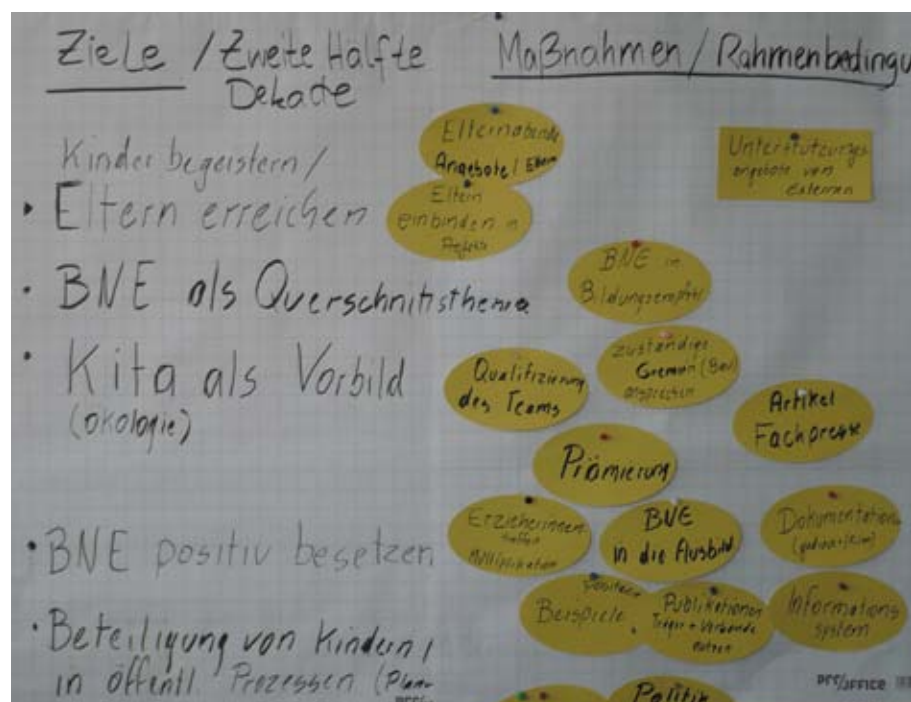 Ziele / Zweite Hälfte
Dekade
Kinder begeistern /
• Eltern erreichen
• BNE als Querschnittsthema
• Kita als Vorbild
(Ökologie)
• BNE positiv besetzen
• Beteiligung von Kindern /
in öffentl Prozessen (Plan-
Maßnahmen / Rahmenbedingu
Elternabende
Angebote / Eltern
Eltern
einbinden in
Unterstützungs
angebote von
Externen
BNE in
zuständige
Gremien
ansprechen
Qualifizierung
des Teams
Artikel
Fachpresse
Prämierung
Erzieherinnen
treffen
BNE
in die Ausbild
Dokumentation
positive
Beispiele
Publikationen
Träger + Verbände
nutzen
Informations
system
Politik